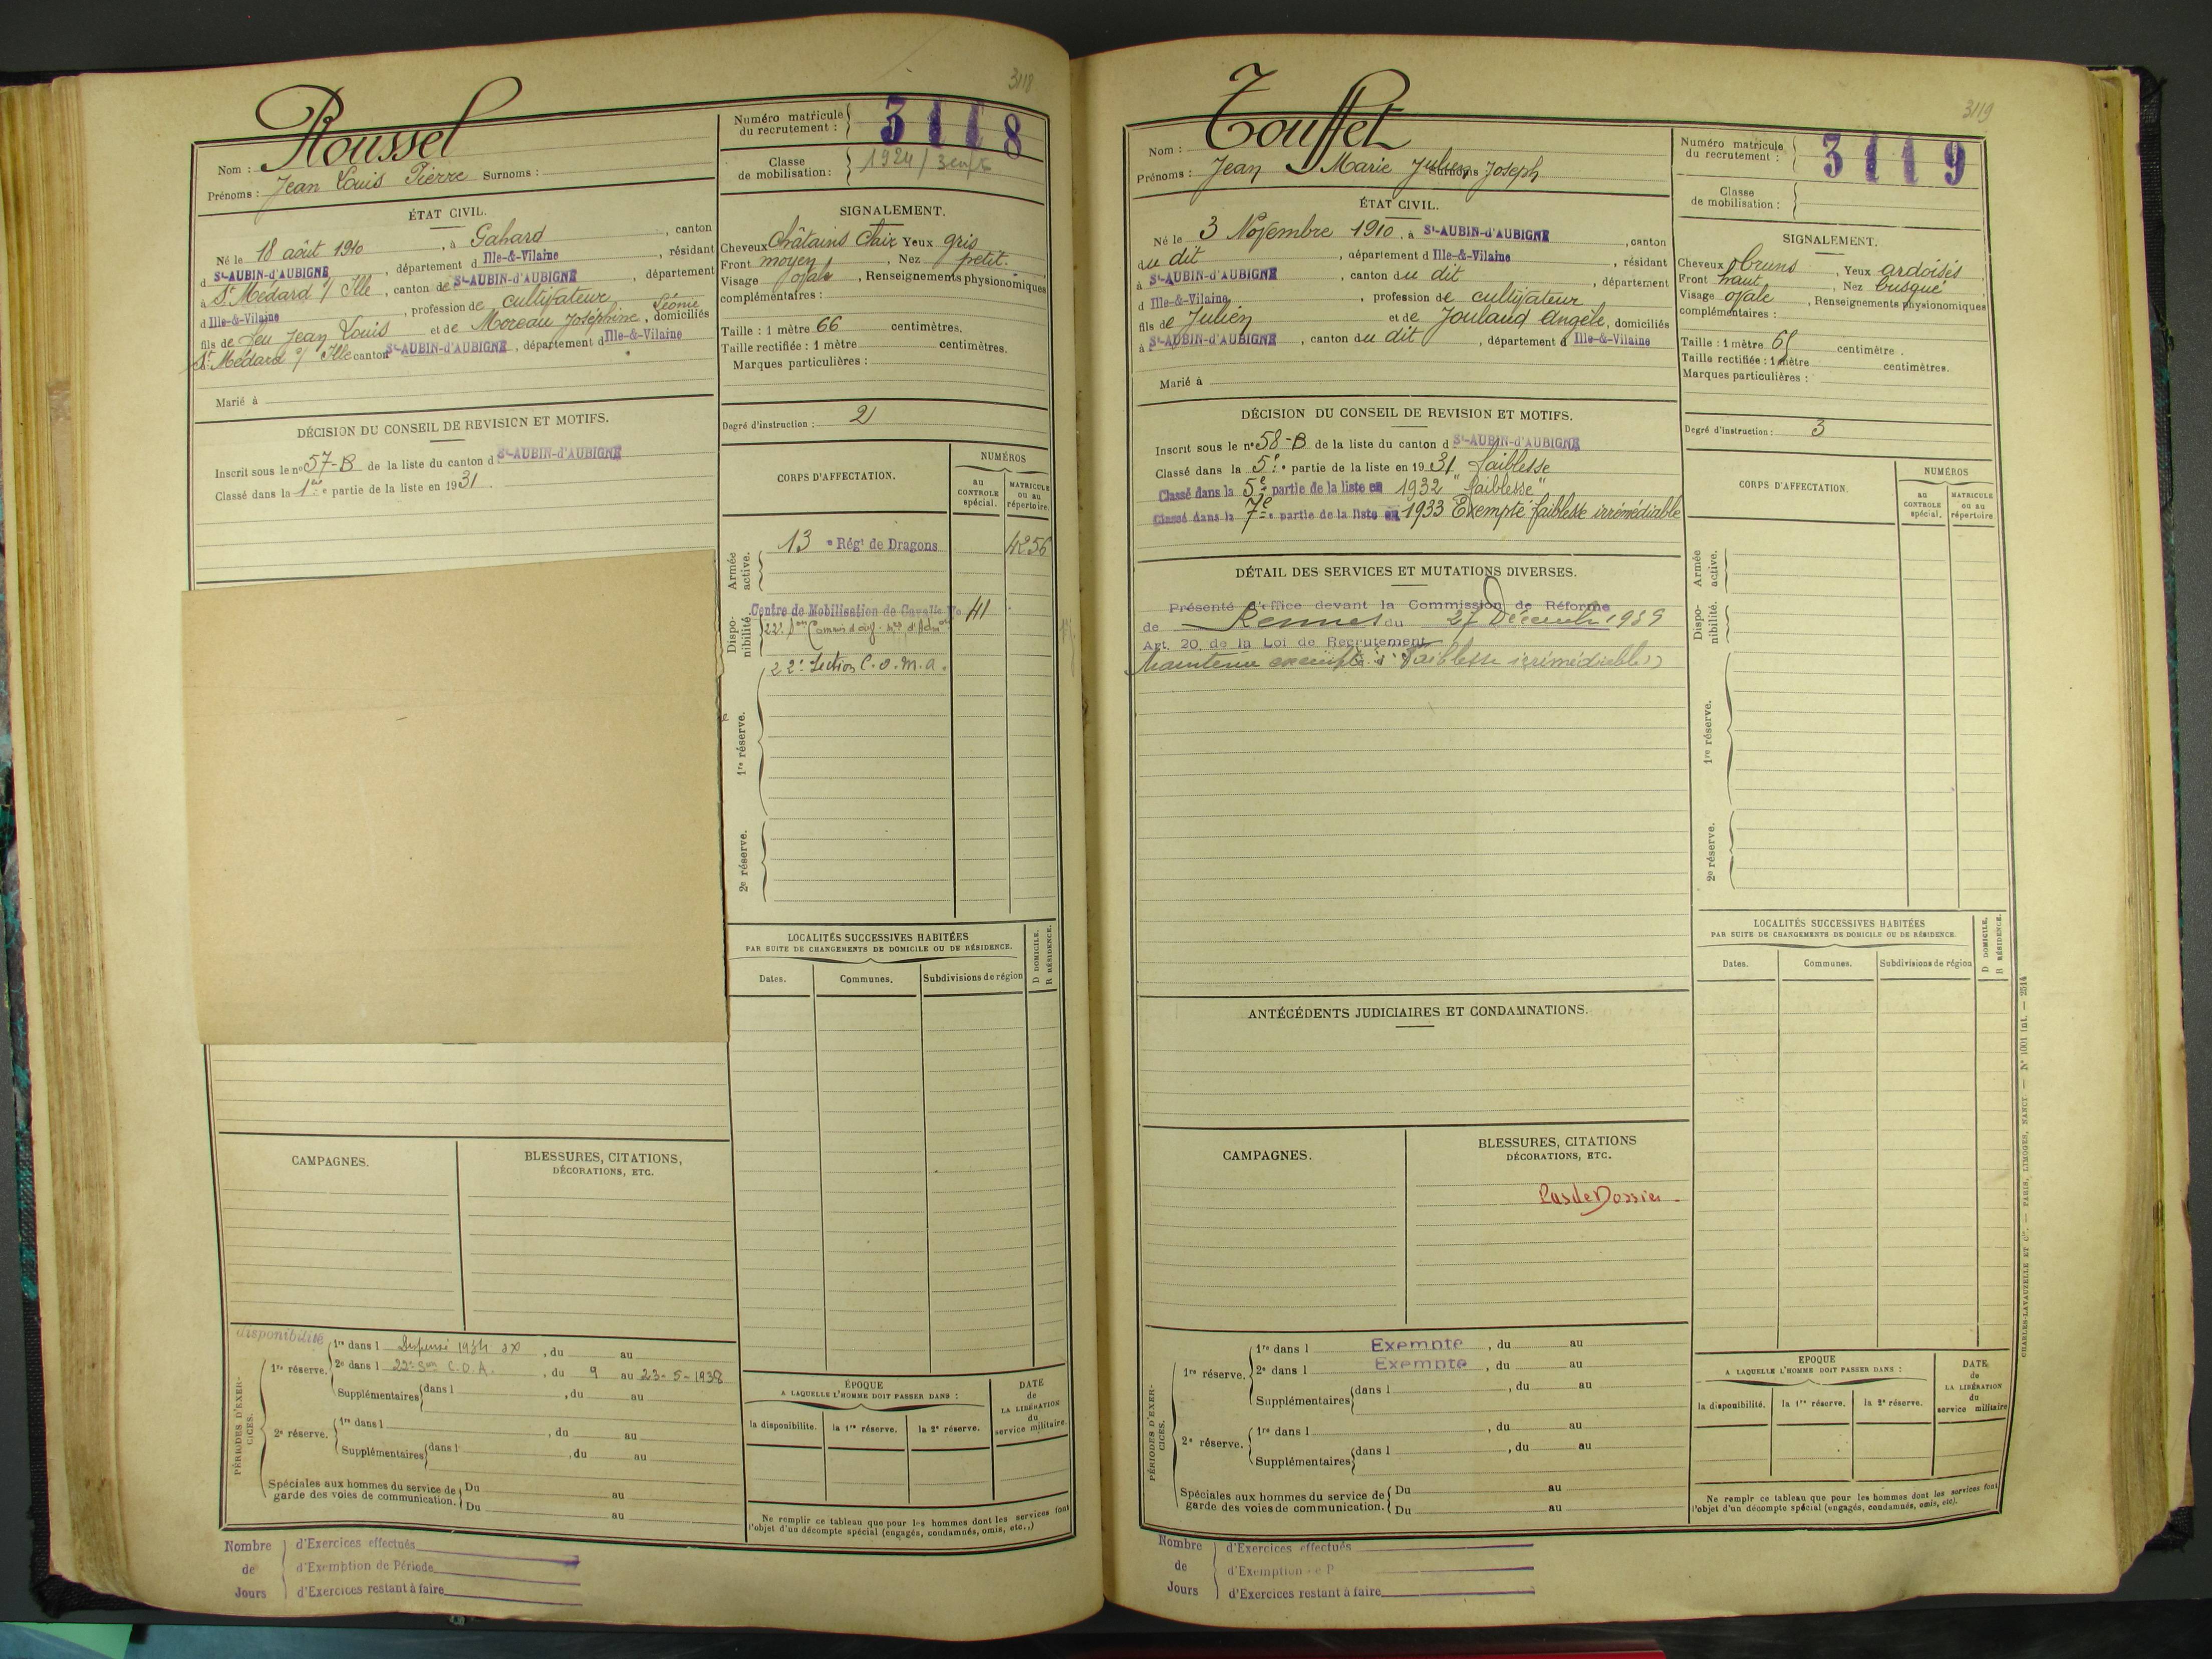 3118
Roussel
Nom :
Prénoms : Jean Louis Pierre Surnoms :
Numéro matricule du recrutement : 3118
Classe de mobilisation : 1924 /
ÉTAT CIVIL.
Né le 18 août 1910, à Gahard, canton
d St-AUBIN-d'AUBIGNÉ, département d Ille-&-Vilaine, résidant
à St Médard s/ Ille, canton de St-AUBIN-d'AUBIGNÉ, département
d Ille-&-Vilaine, profession de cultivateur
fils de feu Jean Louis et de Moreau Joséphine Léonie, domiciliés
à St Médard s/ Ille canton St-AUBIN-d'AUBIGNÉ, département d Ille-&-Vilaine
Marié à
SIGNALEMENT.
Cheveux Châtains Clair Yeux gris
Front moyen, Nez petit.
Visage ovale, Renseignements physionomiques
complémentaires :
Taille : 1 mètre 66 centimètres.
Taille rectifiée : 1 mètre centimètres.
Marques particulières :
Degré d'instruction : 2
DÉCISION DU CONSEIL DE REVISION ET MOTIFS.
Inscrit sous le n° 57-B de la liste du canton d St-AUBIN-d'AUBIGNÉ
Classé dans la 1ère partie de la liste en 1931.
CORPS D'AFFECTATION.
NUMÉROS
au CONTROLE spécial.
MATRICULE ou au répertoire.
Armée active.
13 e Régt de Dragons 4256
Dispo-nibilité.
Centre de Mobilisation de Cavalie No 41
22e Son Commis et ouv. d'Adm
22e Section C.O.M.A.
1re réserve.
2e réserve.
LOCALITÉS SUCCESSIVES HABITÉES
PAR SUITE DE CHANGEMENTS DE DOMICILE OU DE RÉSIDENCE.
D DOMICILE.
R RÉSIDENCE.
Dates.
Communes.
Subdivisions de région
CAMPAGNES.
BLESSURES, CITATIONS,
DÉCORATIONS, ETC.
disponibilité
PÉRIODES D'EXERCICES.
1re réserve.
1re dans l Dispensé 1934, du au
2e dans l 22e Son C.O.A., du 9 au 23-5-1938
Supplémentaires dans l, du au
2e réserve.
1re dans l, du au
Supplémentaires dans l, du au
Spéciales aux hommes du service de garde des voies de communication.
Du au
Du au
ÉPOQUE
A LAQUELLE L'HOMME DOIT PASSER DANS :
la disponibilité.
la 1re réserve.
la 2e réserve.
DATE de LA LIBÉRATION du service militaire.
Ne remplir ce tableau que pour les hommes dont les services font
l'objet d'un décompte spécial (engagés, condamnés, omis, etc.,)
Nombre de Jours
d'Exercices effectués
d'Exemption de Période
d'Exercices restant à faire
3119
Touffet
Nom :
Prénoms : Jean Marie Julien Surnoms Joseph
Numéro matricule du recrutement : 3119
Classe de mobilisation :
ÉTAT CIVIL.
Né le 3 Novembre 1910, à St-AUBIN-d'AUBIGNÉ, canton
du dit, département d Ille-&-Vilaine, résidant
à St-AUBIN-d'AUBIGNÉ, canton du dit, département
d Ille-&-Vilaine, profession de cultivateur
fils de Julien et de Joulaud Angèle, domiciliés
à St-AUBIN-d'AUBIGNÉ, canton du dit, département d Ille-&-Vilaine
Marié à
SIGNALEMENT.
Cheveux bruns, Yeux ardoisés
Front haut, Nez busqué
Visage ovale, Renseignements physionomiques
complémentaires :
Taille : 1 mètre 65 centimètre.
Taille rectifiée : 1 mètre centimètres.
Marques particulières :
Degré d'instruction : 3
DÉCISION DU CONSEIL DE REVISION ET MOTIFS.
Inscrit sous le n° 58-B de la liste du canton d St-AUBIN-d'AUBIGNÉ
Classé dans la 5e partie de la liste en 1931 faiblesse
Classé dans la 5e partie de la liste en 1932 "faiblesse"
Classé dans la 7e partie de la liste en 1933 Exempté faiblesse irrémédiable
DÉTAIL DES SERVICES ET MUTATIONS DIVERSES.
Présenté d'office devant la Commission de Réforme
de Rennes du 27 Décembre 1939
Art. 20 de la Loi de Recrutement
Maintenu exempté "Faiblesse irrémédiable"
CORPS D'AFFECTATION.
NUMÉROS
au CONTROLE spécial.
MATRICULE ou au répertoire
Armée active.
Dispo-nibilité.
1re réserve.
2e réserve.
ANTÉCÉDENTS JUDICIAIRES ET CONDAMNATIONS.
LOCALITÉS SUCCESSIVES HABITÉES
PAR SUITE DE CHANGEMENTS DE DOMICILE OU DE RÉSIDENCE.
D DOMICILE.
R RÉSIDENCE.
Dates.
Communes.
Subdivisions de région
CAMPAGNES.
BLESSURES, CITATIONS
DÉCORATIONS, ETC.
Pas de Dossier.
PÉRIODES D'EXERCICES.
1re réserve.
1re dans l Exempte, du au
2e dans l Exempte, du au
Supplémentaires dans l, du au
2e réserve.
1re dans l, du au
Supplémentaires dans l, du au
Spéciales aux hommes du service de garde des voies de communication.
Du au
Du au
EPOQUE
A LAQUELLE L'HOMME DOIT PASSER DANS :
la disponibilité.
la 1re réserve.
la 2e réserve.
DATE de LA LIBÉRATION du service militaire
Ne remplr ce tableau que pour les hommes dont les services font
l'objet d'un décompte spécial (engagés, condamnés, omis, etc).
Nombre de Jours
d'Exercices effectués
d'Exemption e P
d'Exercices restant à faire
CHARLES-LAVAUZELLE ET Cie. — PARIS, LIMOGES, NANCY — N° 1001 Int. — 2514